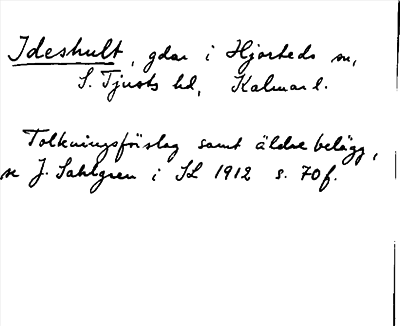 Ideshult, gdar i Hjorteds sn,
S. Tjusts hd, Kalmar l.
Tolkningsförslag samt äldre belägg,
se J. Sahlgren i SL 1912 s. 70 f.